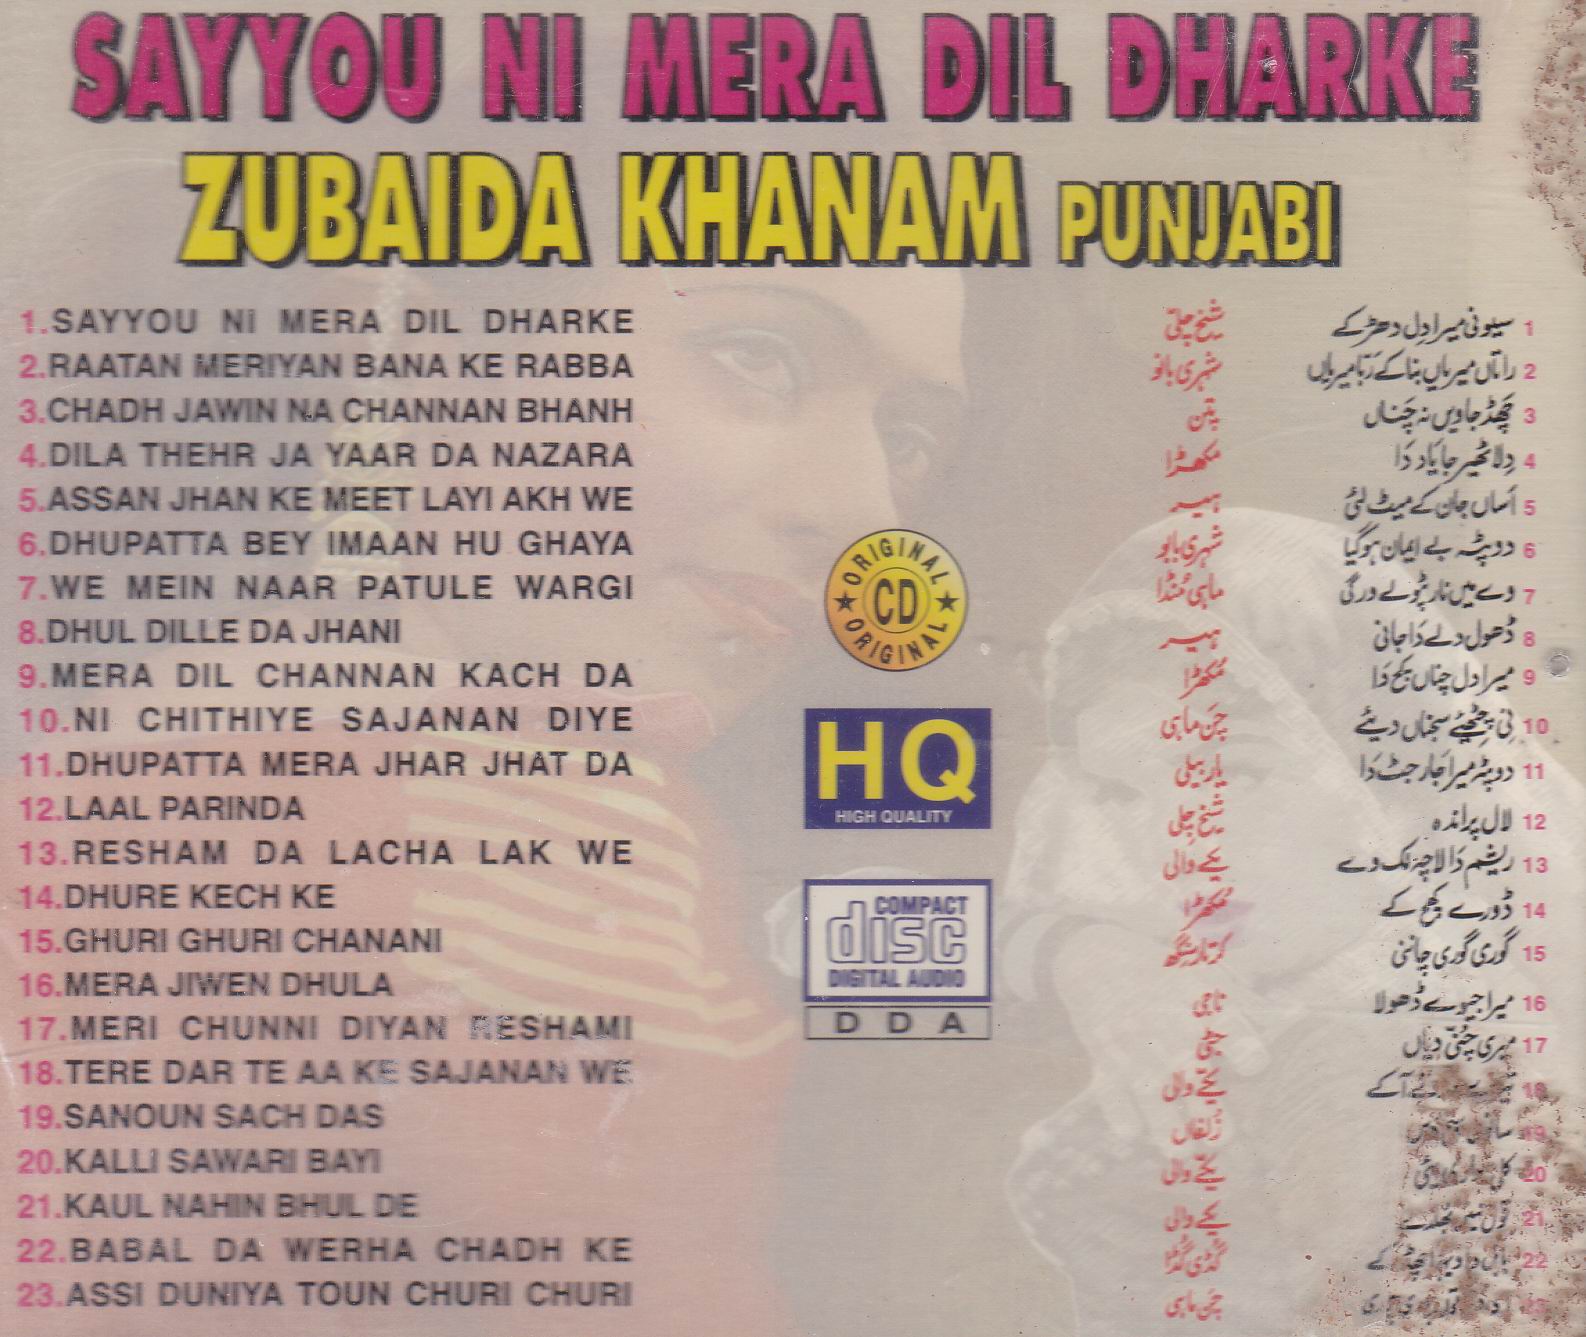 SAYYOU NI MERA DIL DHARKE
ZUBAIDA KHANAM PUNJABI
1.SAYYOU Ni MERA DIL DHARKE
2.RAATAN MERIYAN BANA KE RABBA
3.CHADH JAWIN NA CHANNAN BHANH
4.DILA THEHR JA YAAR DA NAZARA
5.ASSAN JHAN KE MEET LAYI AKH WE
6.DHUPATTA BEY IMAAN HU GHAYA
7.WE MEIN NAAR PATULE WARGI
8.DHUL DILLE DA JHANI
9.MERA DIL CHANNAN KACH DA
10.NI CHITHIYE SAJANAN DIYE
11.DHUPATTA MERA JHAR JHAT DA
12.LAAL PARINDA
13.RESHAM DA LACHA LAK WE
14.DHURE KECH KE
15.GHURI GHURI CHANANI
16.MERA JIWEN DHULA
17.MERI CHUNNI DIYAN RESHAMI
18.TERE DAR TE AA KE SAJANAN WE
19.SANOUN SACH DAS
20.KALLi SAWARI BAYI
21.KAUL NAHIN BHUL DE
22.BABAL DA WERHA CHADH KE
23.ASSI DUNIYA TOUN CHURI CHURI
ORIGINAL
CD
ORIGINAL
HQ
HIGH QUALITY
COMPACT
disc
DIGITAL AUDIO
D D A
1 سیونی میرا دِل دھڑکے شیخ چلّی
2 راتاں میریاں بنا کے رَبّا میریاں شہری بانو
3 چھڈ جاویں نہ چَناں پتن
4 دِلا ٹھیر جا یاد دَا مکھڑا
5 اَساں جان کے میٹ لئی ہیر
6 دوپٹہ بے ایمان ہوگیا شہری بابو
7 وے میں نار پٹولے ورگی ماہی مُنڈا
8 ڈھول دلے دَا جانی ہیر
9 میرا دل چناں کچ دَا مُکھڑا
10 نِی چِٹھیئے سجناں دیئے چَن ماہی
11 دوپٹہ میرا جھَار جٹ دَا یار بیلی
12 لال پراندہ شیخ چلی
13 ریشم دَا لاچہ لک وے یکے والی
14 ڈورے کھچ کے مُکھڑا
15 گوری گوری چاننی کرتار سنگھ
16 میرا جیوے ڈھولا ناجی
17 میری چُنّی دیاں جٹی
18 آکے یکّے والی
19 زُلفاں
20 یکّے والی
21 یکے والی
22 کے گُڈی گُڈا
23 چَن ماہی